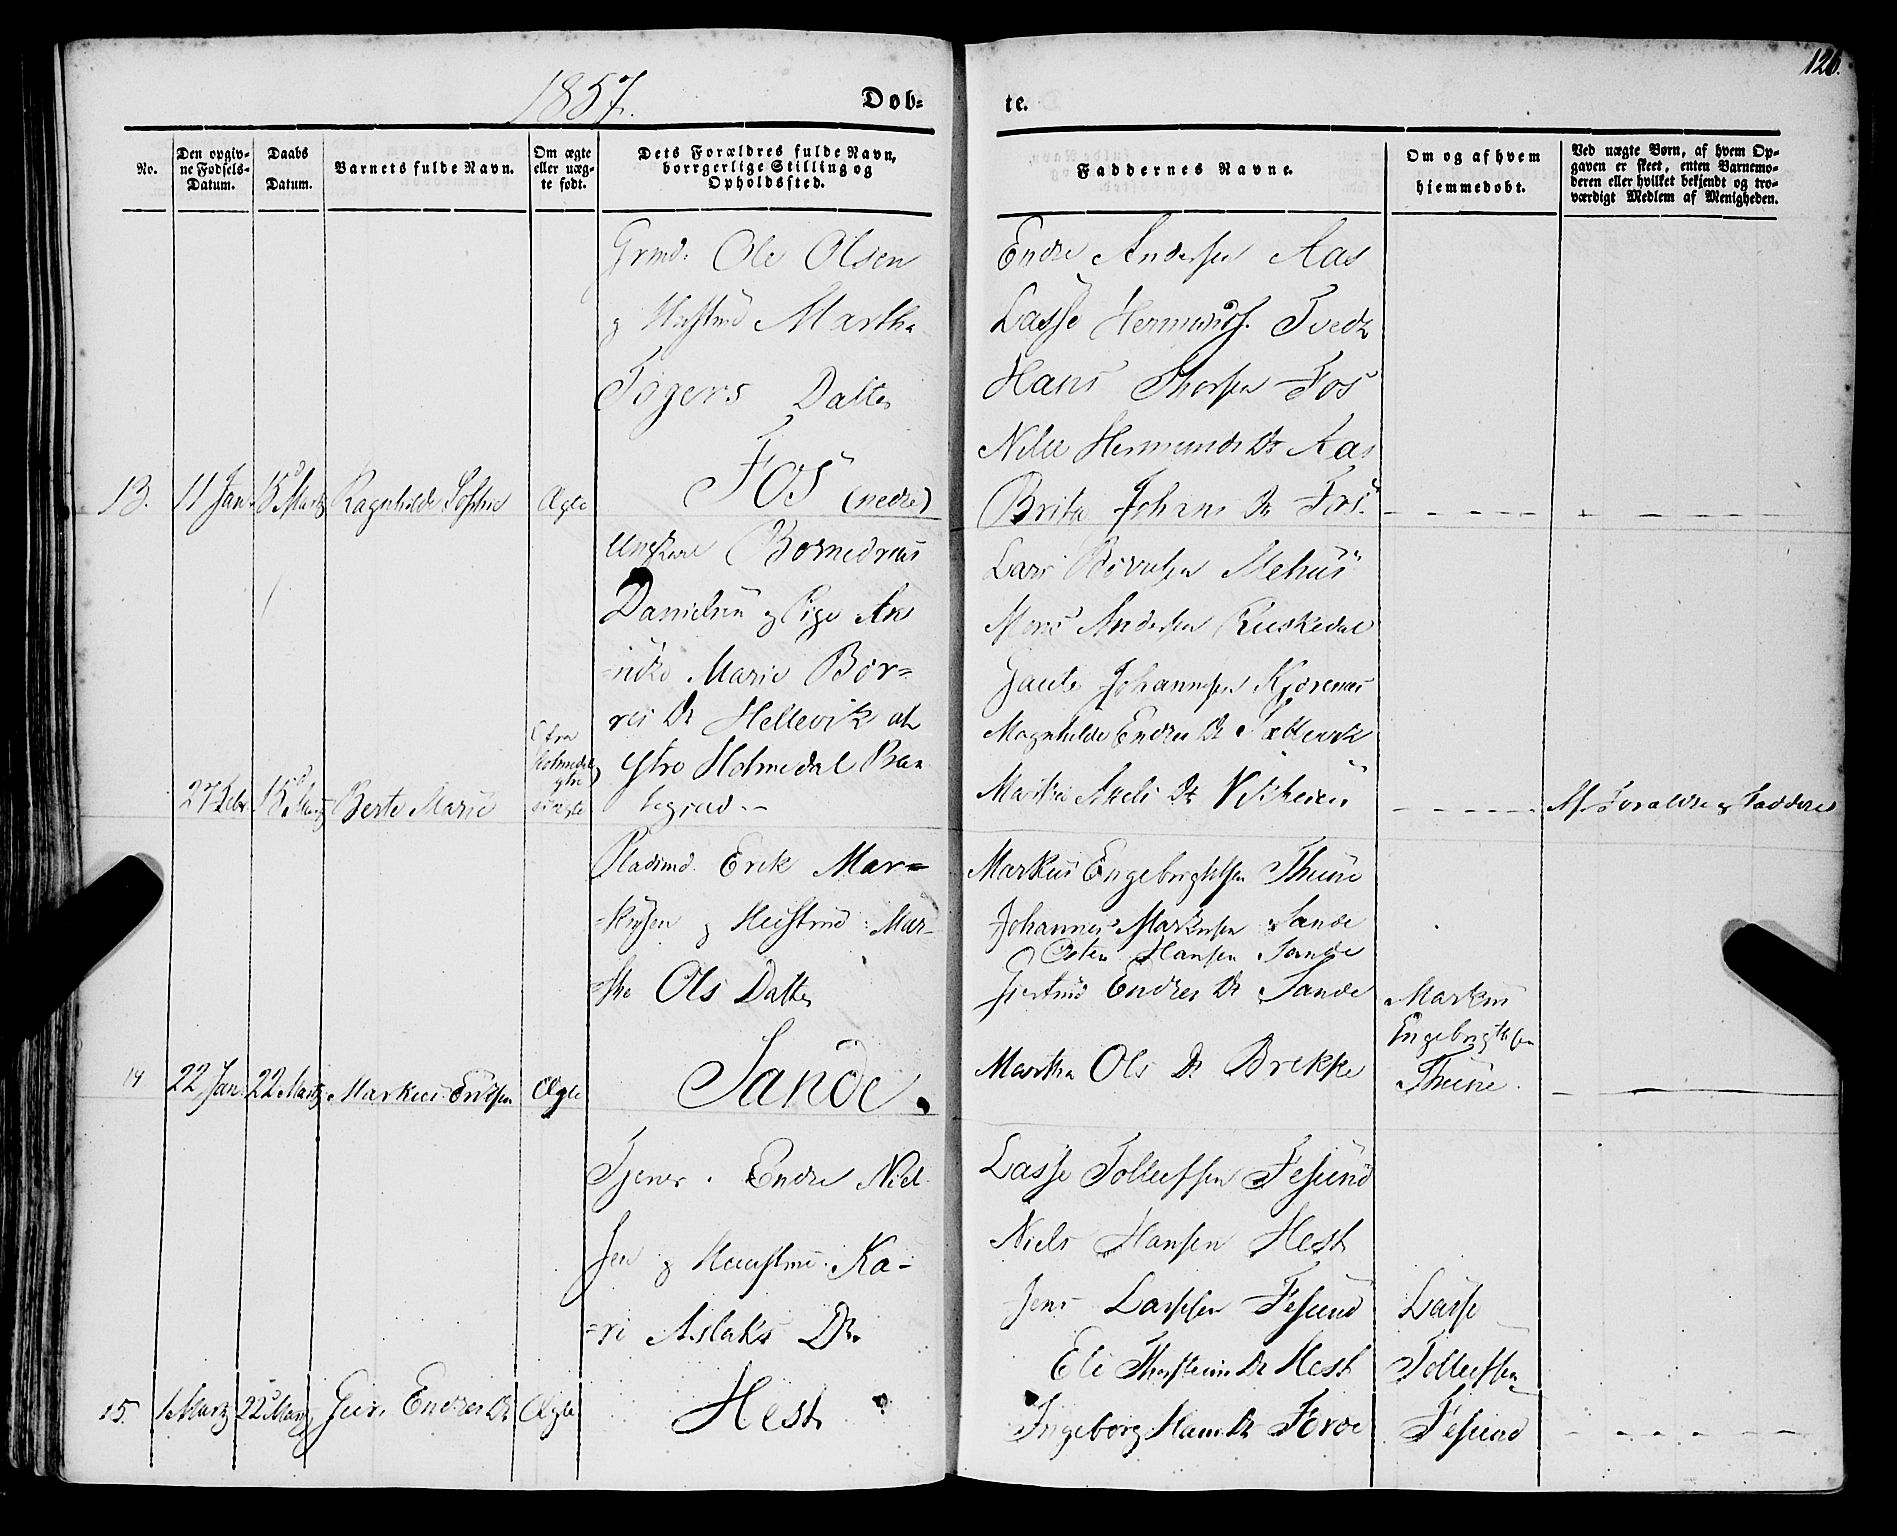 1857.
Døb-
te.
126.
No.
Den opgiv-
ne Fødsels-
Datum.
Daabs
Datum.
Barnets fulde Navn.
Om ægte
eller uæg-
te født.
Dets Forældres fulde Navn,
borrgerlige Stilling og
Opholdssted.
Faddernes Navne.
Om og af hvem
hjemmedøbt.
Ved uægte Børn, af hvem Op-
gaven er skeet, enten Barnemo-
deren eller hvilket bekjendt og tro-
værdigt Medlem af Menigheden.
13.
11 Jan
15 Martz
Ragnhilde Sophie
Ægte
Grmd. Ole Olsen
g Hustrue Martha
Tøgers Datter
Fos (nedre)
Endre Andersen Aas
Lasse Hermunds. Tvedt
Hans Thorsen Fos
Nille Hermunds Dr Aas
Brita Johans Dr Fos.
27 Febr
15 Martz
Berte Marie
fra
Holmedal
ytre
uægte
Ungkarl
Danielsen g Pige An
nike Marie Bør=
res Dr Hellevik af
ytre Holmedal Præ
tegjæld.
Lars Mehus
Mons Andersen
Gaute Johannesen
Magnhilde Endres Dr
Martha Axels Dr
Af Forældre g Faddere
14
22 Jan
22 Martz
Markus Eriksen
Ægte
Pladsmd. Erik Mar=
kusen g Hustrue Mar-
the Ols Datter
Sande.
Markus Engebrigtsen Thune
Johannes Markusen Sande
Osten Hansen Sande
Gjertrud Endres Dr Sande
Martha Ols Dr Brekke
Markus
Engebrigtsen
Thune.
15.
1 Martz
22 Martz
Guri Endres Dr
Ægte
Tjener. Endre Niel
sen g Hustrue Ka-
ri Aslaks Dr.
Hest
Lasse Tollefsen Fesund
Niels Hansen Hest
Jens Lassesen Fesund
Eli Thorsteins Dr Hest
Ingeborg Hans Dr Førde
Lasse
Tollefsen
Fesund